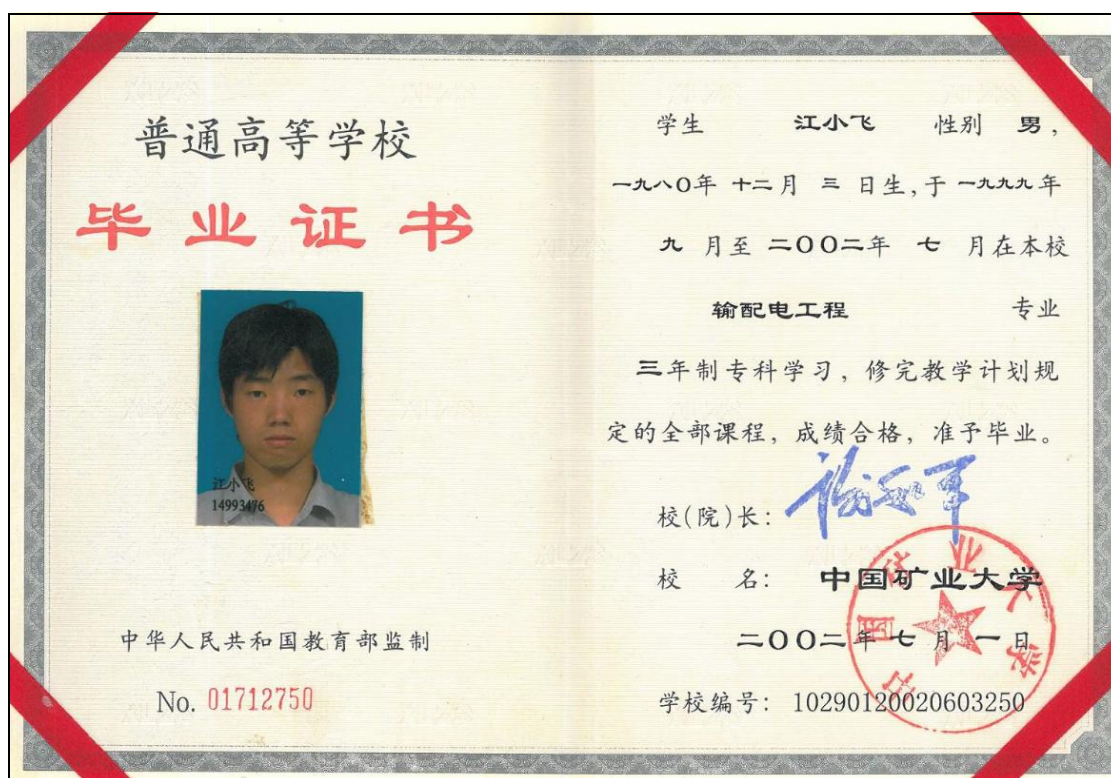 普通高等学校
毕业证书
江小飞
14993476
中华人民共和国教育部监制
No. 01712750
学生 江小飞 性别 男,
一九八〇年 十二月 三 日生,于 一九九九年
九 月至 二〇〇二年 七 月在本校
输配电工程 专业
三年制专科学习，修完教学计划规
定的全部课程，成绩合格，准予毕业。
校(院)长:
校 名: 中国矿业大学
二〇〇二年 七 月 一 日
学校编号: 10290120020603250
中国矿业大学